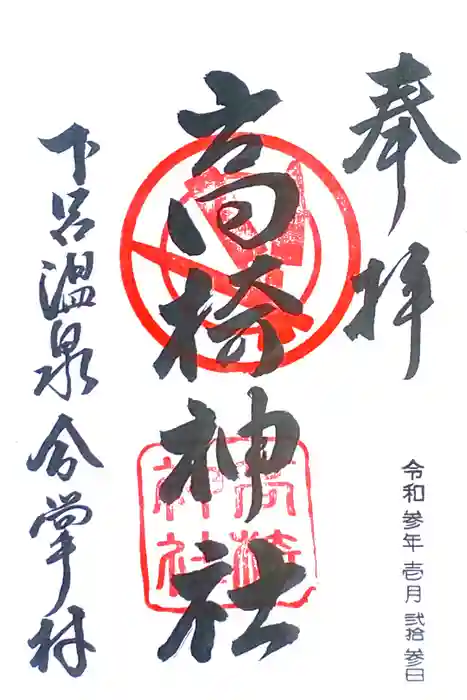 奉拝
高椅神社
高椅
神社
下呂温泉合掌村
令和 参年 壱月 弐拾 参日